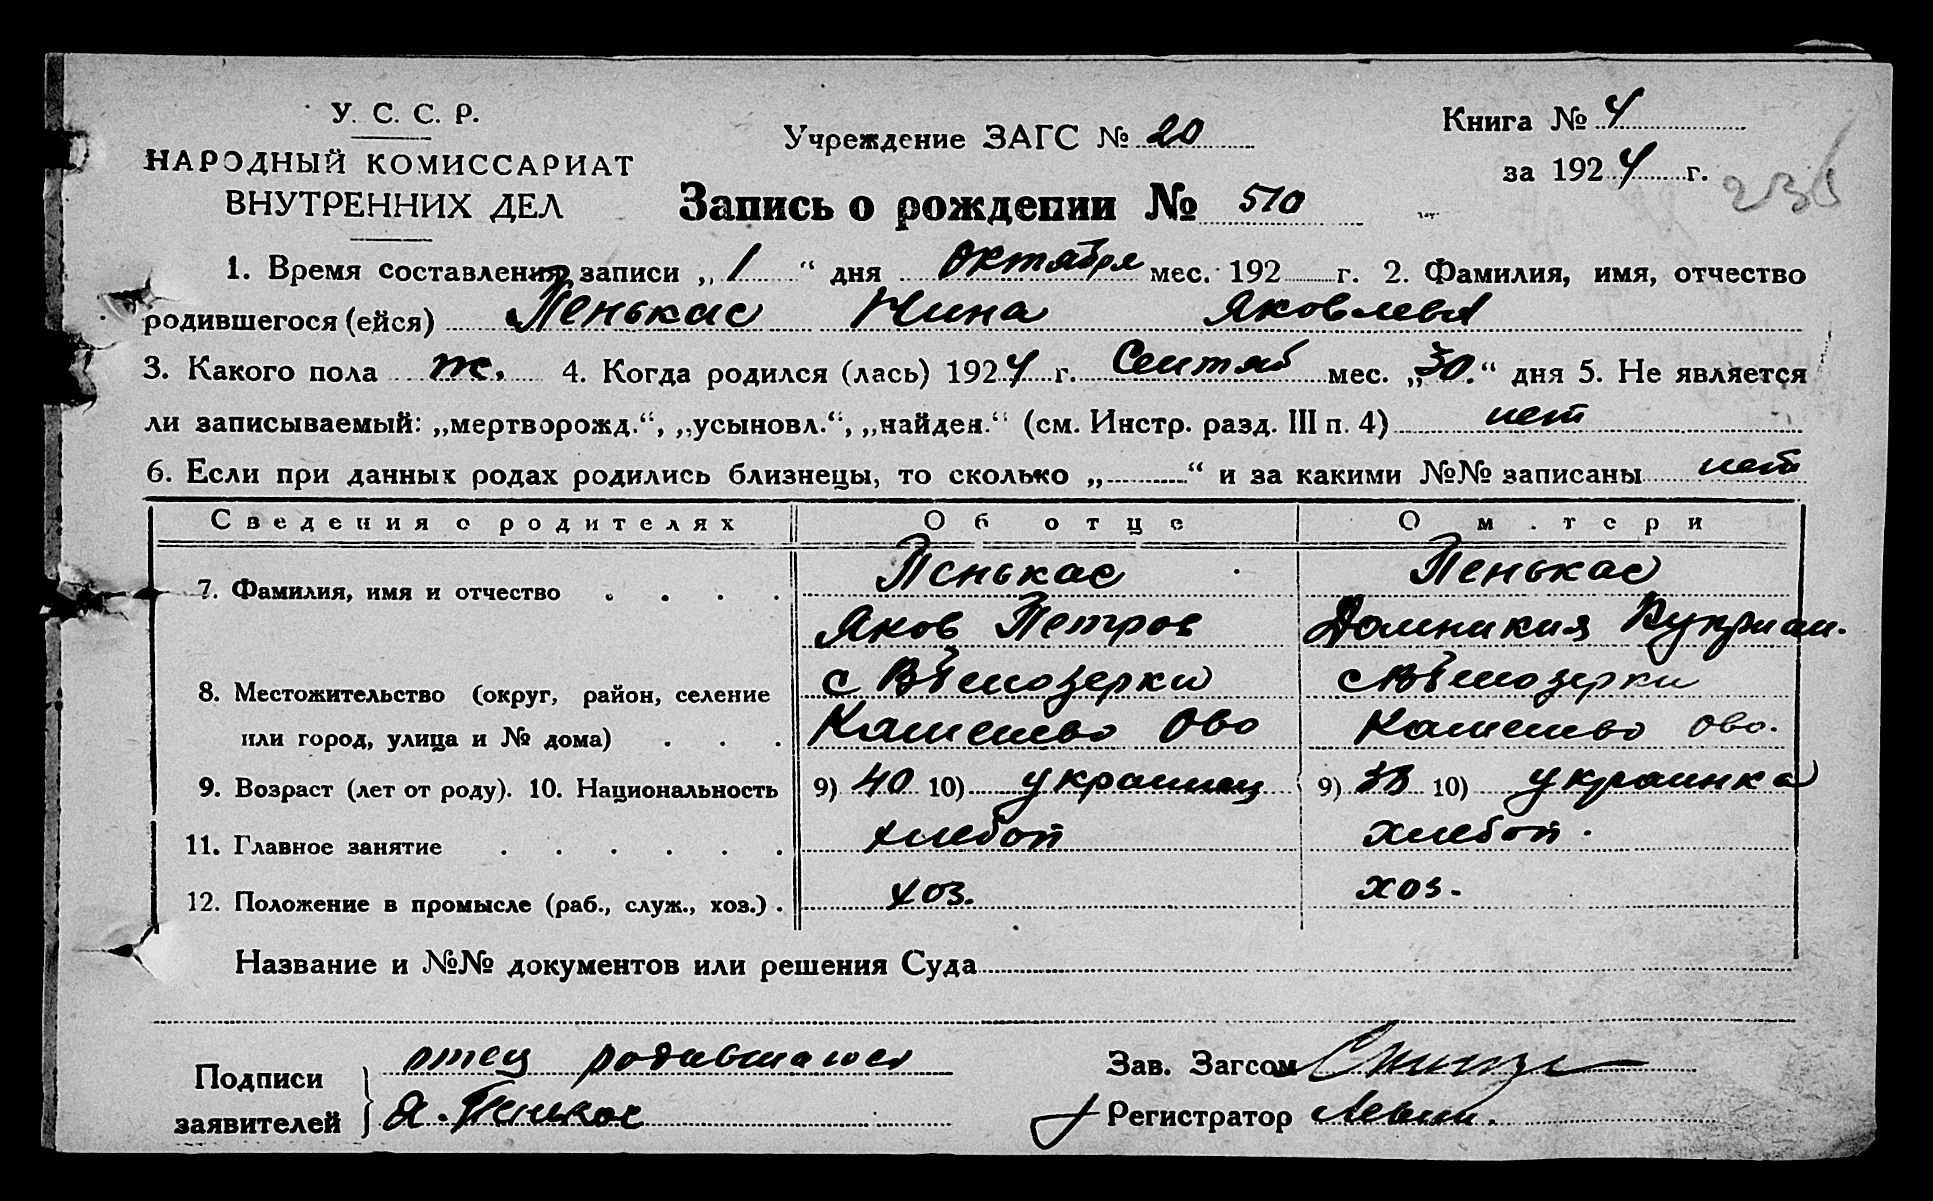 У. С. С. Р.
НАРОДНЫЙ КОМИССАРИАТ
ВНУТРЕННИХ ДЕЛ
Учреждение ЗАГС № 20
Книга № 4
за 1924 г.
Запись о рождении № 510
1. Время составления записи „ 1 “ дня октября мес. 192 г. 2. Фамилия, имя, отчество
родившегося (ейся) Пенькас Нина Яковлевн
3. Какого пола ж. 4. Когда родился (лась) 1924 г. Сентяб мес. „30.“ дня 5. Не является
ли записываемый: „мертворожд.“, „усыновл.“, „найден.“ (см. Инстр. разд. III п. 4) нет
6. Если при данных родах родились близнецы, то сколько „ “ и за какими №№ записаны нет
Сведения о родителях Об отце О матери
7. Фамилия, имя и отчество Пенькас Пенькас
Яков Петров Домникия
8. Местожительство (округ, район, селение
или город, улица и № дома) Ово Ово.
9. Возраст (лет от роду). 10. Национальность 9) 40 10) украинец 9) 38 10) украинка
11. Главное занятие хлебоп хлебоп.
12. Положение в промысле (раб., служ., хоз.) хоз. хоз.
Название и №№ документов или решения Суда
Подписи отец родившагося Зав. Загсом
заявителей Я. Пенькас Регистратор Левин.